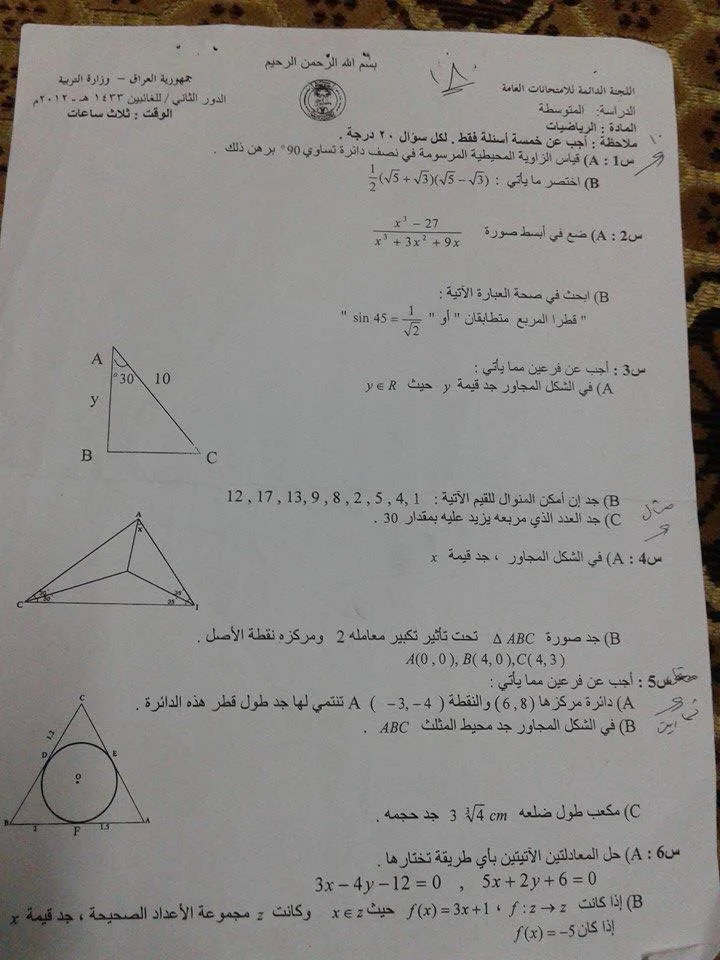 بسم الله الرحمن الرحيم
جمهورية العراق – وزارة التربية
الدور الثاني / للغائبين ١٤٣٣ هـ - ٢٠١٢م
الوقت : ثلاث ساعات
اللجنة الدائمة للامتحانات العامة
الدراسة: المتوسطة
المادة : الرياضيات
ملاحظة : أجب عن خمسة أسئلة فقط . لكل سؤال ٢٠ درجة .
س1 : A) قياس الزاوية المحيطية المرسومة في نصف دائرة تساوي 90° برهن ذلك .
B) اختصر ما يأتي : 1/2(√5 + √3)(√5 − √3)
س2 : A) ضع في أبسط صورة (x³ − 27)/(x³ + 3x² + 9x)
B) ابحث في صحة العبارة الآتية :
" قطرا المربع متطابقان " أو " sin 45 = 1/√2 "
س3 : أجب عن فرعين مما يأتي :
A) في الشكل المجاور جد قيمة y حيث y ∈ R
A
°30
10
y
B
C
B) جد إن أمكن المنوال للقيم الآتية : 12 , 17 , 13, 9 , 8 , 2 , 5 , 4, 1
C) جد العدد الذي مربعه يزيد عليه بمقدار 30 .
س4 : A) في الشكل المجاور ، جد قيمة x
A
x
C
30
30
35
35
B) جد صورة Δ ABC تحت تأثير تكبير معامله 2 ومركزه نقطة الأصل .
A(0 , 0) , B( 4, 0) ,C( 4, 3 )
س5 : أجب عن فرعين مما يأتي :
A) دائرة مركزها (6 , 8) والنقطة A ( −3, −4 ) تنتمي لها جد طول قطر هذه الدائرة .
B) في الشكل المجاور جد محيط المثلث ABC .
C
D
E
O
B
2
F
1.5
A
C) مكعب طول ضلعه 3 ∛4 cm جد حجمه .
س6 : A) حل المعادلتين الآتيتين بأي طريقة تختارها .
3x − 4y − 12 = 0 , 5x + 2y + 6 = 0
B) إذا كانت f : z → z ، f(x) = 3x + 1 حيث x ∈ z وكانت z مجموعة الأعداد الصحيحة ، جد قيمة x
إذا كان f(x) = −5